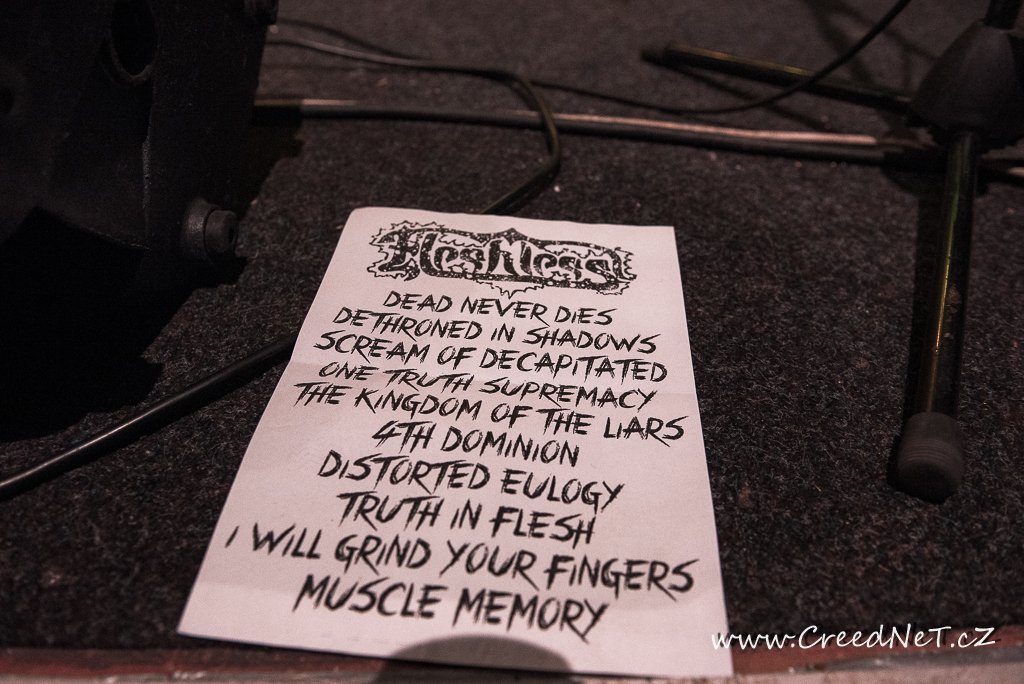 Fleshless
DEAD NEVER DIES
DETHRONED IN SHADOWS
SCREAM OF DECAPITATED
ONE TRUTH SUPREMACY
THE KINGDOM OF THE LIARS
4TH DOMINION
DISTORTED EULOGY
TRUTH IN FLESH
I WILL GRIND YOUR FINGERS
MUSCLE MEMORY
www.CreedNeT.cZ